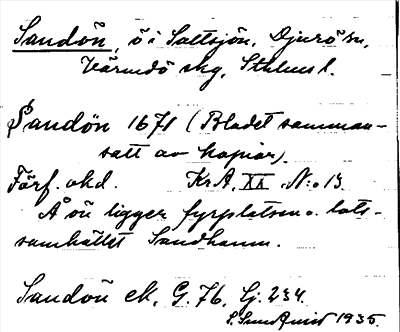 Sandön, ö i Saltsjön, Djurö sn,
Värmdö skg, Sthlms l.
Sandön 1671 (Bladet samman-
satt av kopior).
Förf. okd. KrA, XX, N:o 13
Å ön ligger fyrplatsen o. lots-
samhället Sandhamn.
Sandön ek, G. 76, Lj. 234
S. Sundqvist 1935.